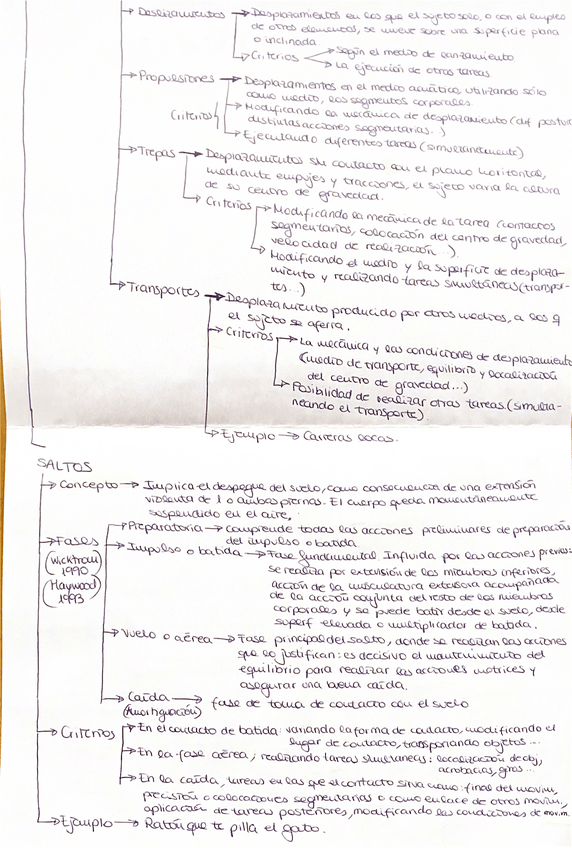 → Deslizamientos → Desplazamientos en los que el sujeto solo, o con el empleo
de otros elementos, se mueve sobre una superficie plana
o inclinada.
→ Criterios → Según el medio de lanzamiento
→ La ejecución de otras tareas
→ Propulsiones → Desplazamientos en el medio acuático, utilizando sólo
como medio, los segmentos corporales.
Criterios → Modificando la mecánica de desplazamiento (dif postur
distintas acciones segmentarias..)
→ Ejecutando diferentes tareas (simultáneamente)
→ Trepas → Desplazamientos sin contacto con el plano horizontal,
mediante empujes y tracciones, el sujeto varia la altura
de su centro de gravedad.
→ Criterios → Modificando la mecánica de la tarea (contactos
segmentarios, colocación del centro de gravedad,
velocidad de realización...).
→ Modificando el medio y la superficie de desplaza-
miento y realizando tareas simultáneas (transpor-
tes...)
→ Transportes → Desplazamiento producido por otros medios, a los q
el sujeto se aferra.
→ Criterios → La mecánica y las condiciones de desplazamiento
(medio de transporte, equilibrio y localización
del centro de gravedad...)
→ Posibilidad de realizar otras tareas (simulta-
neando el transporte).
→ Ejemplo → Carreras locas.
SALTOS
→ Concepto → Implica el despegue del suelo, como consecuencia de una extensión
violenta de 1 o ambas piernas. El cuerpo queda momentáneamente
suspendido en el aire,
→ Fases (Wicktrau 1990 (Haywood 1993 → Preparatoria → comprende todas las acciones preliminares de preparación
del impulso o batida
→ Impulso o batida → Fase fundamental. Influida por las acciones previas:
se realiza por extensión de los miembros inferiores,
acción de la musculatura extensora acompañada
de la acción conjunta del resto de los miembros
corporales y se puede batir desde el suelo, desde
superf elevada o multiplicador de batida.
→ Vuelo o aérea → Fase principal del salto, donde se realizan las acciones
que lo justifican: es decisivo el mantenimiento del
equilibrio para realizar las acciones motrices y
asegurar una buena caída.
→ Caída → fase de toma de contacto con el suelo
(Amortiguación)
→ Criterios → En el contacto de batida: variando la forma de contacto, modificando el
lugar de contacto, transportando objetos...
→ En la fase aérea; realizando tareas simultaneas: localización de obj,
acrobacias, giros...
→ En la caída, tareas en las que el contacto sirva como: final del movim,
precisión o colocaciones segmentarias o como enlace de otros movim,
aplicación de tareas posteriores, modificando las condiciones de movim.
→ Ejemplo → Ratón que te pilla el gato.